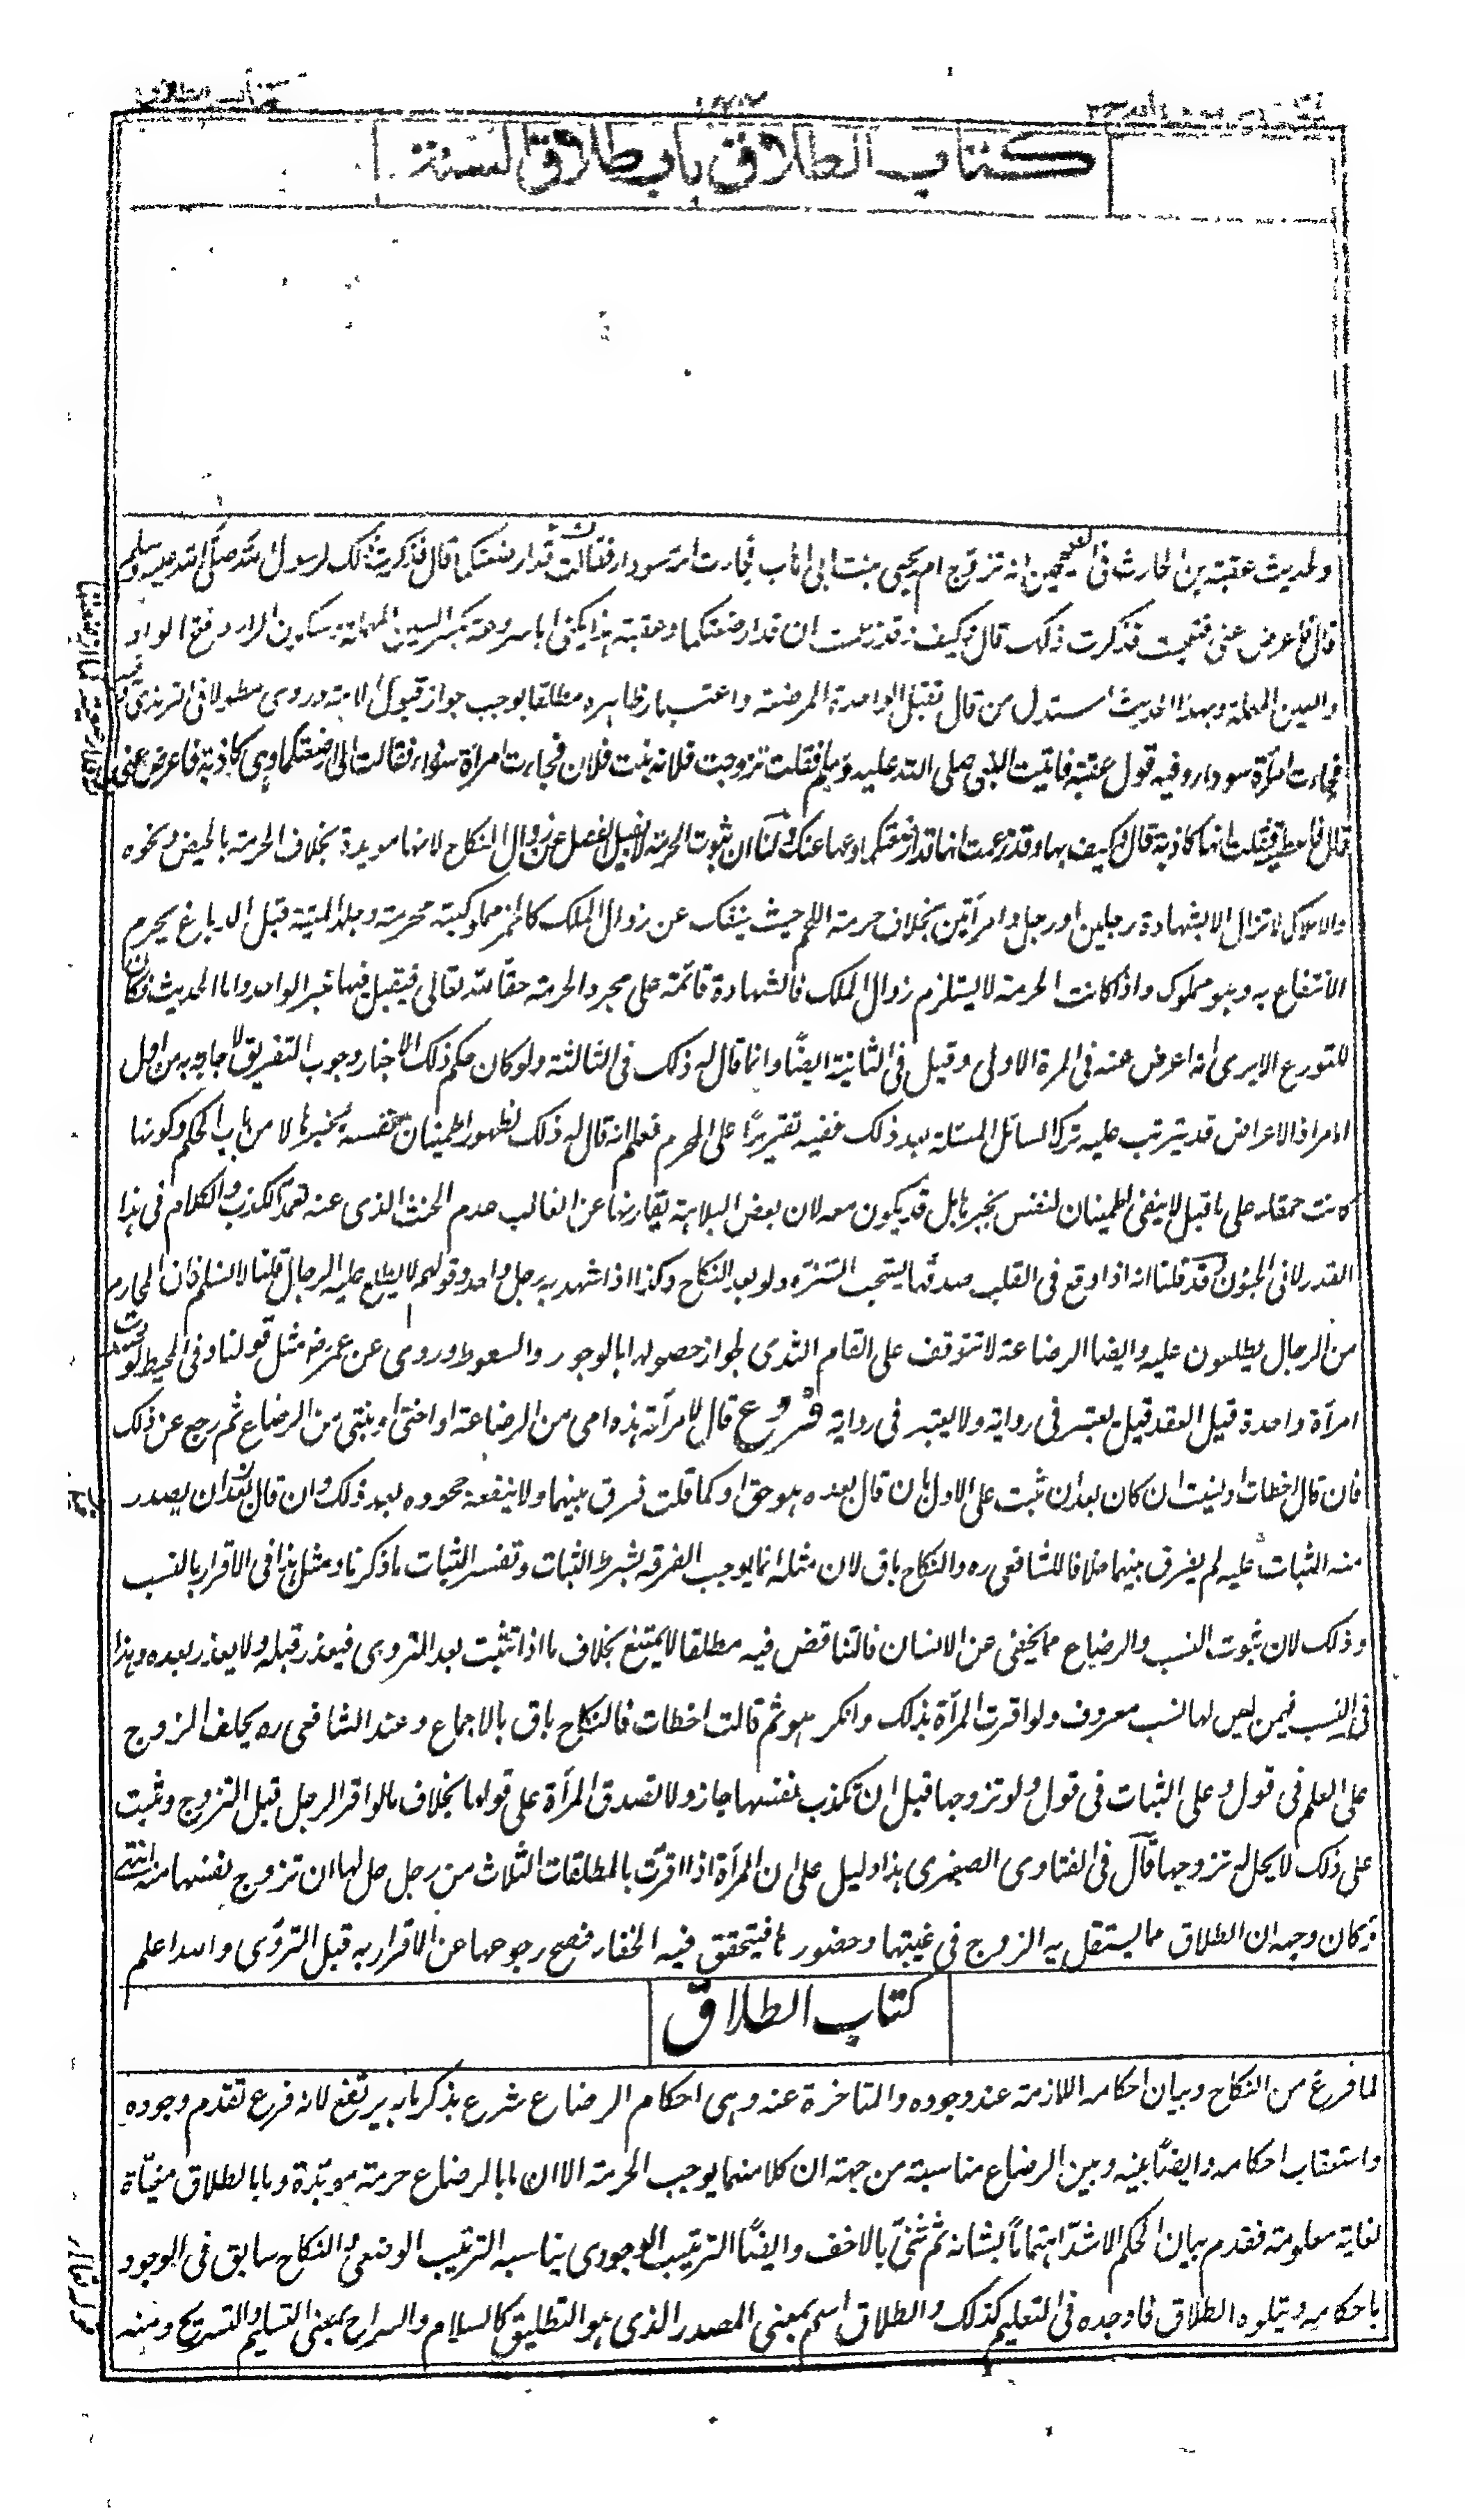 كتاب الطلاق
كتاب الطلاق باب طلاق السنة
ولحديث عقبة بن الحارث فى الصحيحين انه تزوج ام يحيى بنت ابى اهاب فجاءت امة سوداء فقالت قد ارضعتكما قال فذكرت ذلك لرسول الله صلى الله عليه وسلم
قال فاعرض عنى فتنحيت فذكرت ذلك قال وكيف وقد زعمت ان قد ارضعتكما وعقبة هذا يكنى ابا سروعة بكسر السين المهملة وسكون الراء وفتح الواو
والعين المهملة وبهذا الحديث استدل من قال تقبل الواحدة المرضعة واعتبار ظاهره مطلقا يوجب جواز قبول الامة وروى مطولا فى الترمذى
فجاءت امرأة سوداء وفيه قول عقبة فاتيت النبى صلى الله عليه وسلم فقلت تزوجت فلانة بنت فلان فجاءت امرأة سوداء فقالت انى ارضعتكما وهى كاذبة فاعرض عنى
قال فاتيته فقلت انها كاذبة قال وكيف بها وقد زعمت انها قد ارضعتكما دعها عنك ولنا ان ثبوت الحرمة لا يقبل الفصل عن زوال النكاح لانها مويدة بخلاف الحرمة بالحيض ونحوه
والاملاك لا تزال الا بشهادة رجلين او رجل وامرأتين بخلاف حرمة اللحم حيث ينفك عن زوال الملك كالخمر مملوكية محرمة وجلد الميتة قبل الدباغ يحرم
الانتفاع به وهو مملوك واذا كانت الحرمة لا يستلزم زوال الملك فالشهادة قائمة على مجرد الحرمة حقا لله تعالى فيقبل فيها خبر الواحد واما الحديث فكان
للتورع الا يرى انه اعرض عنه فى المرة الاولى وقيل فى الثانية ايضًا وانما قال له ذلك فى الثالثة ولو كان حكم ذلك الاخبار وجوب التفريق لاجابه به من اول
الامر اذ الاعراض قد يترتب عليه ترك السائل المسئلة بعد ذلك ففيه تقريرًا على المحرم فعلم انه قال له ذلك لظهور اطمينان نفسه بخبرها لا من باب الحكم وكونها
كانت حمقاء على ما قيل لا ينفى اطمينان النفس بخبرها بل قد يكون معه لان بعض البلاهة يقارنها عن الغالب عدم الخبث الذى عنه تعمد الكذب والكلام فى هذا
القدر لا فى الجنون وقد قلنا انه اذا وقع فى القلب صدقها يستحب التنزه ولو بعد النكاح وكذا اذا شهد به رجل واحد وقولهم لا يطلع عليه الرجال قلنا لا نسلم فان المحارم
من الرجال يطلعون عليه وايضا الرضاعة لا تتوقف على القام الثدى لجواز حصولها بالوجور والسعوط وروى عن عمر رضـ مثل قولنا وفى المحيط لو شهدت
امرأة واحدة قبل العقد قيل يعتبر فى رواية ولا يعتبر فى رواية فروع قال لامرأته هذه امى من الرضاعة او اختى او بنتى من الرضاع ثم رجع عن ذلك
فان قال اخطات او نسيت ان كان بعد ان ثبت على الاول بان قال بعده هو حق او كما قلت فرق بينهما ولا ينفعه جحوده بعد ذلك وان قال قبل ان يصدر
منه الثبات عليه لم يفرق بينهما خلافا للشافعى ره والنكاح باق لان مثله انما يوجب الفرقة بشرط الثبات وتفسير الثبات ما ذكرنا ومثل هذا فى الاقرار بالنسب
وذلك لان ثبوت النسب والرضاع مما يخفى عن الانسان فالتناقض فيه مطلقا لا يمتنع بخلاف ما اذا ثبت بعد التروى فيعذر قبله ولا يعذر بعده وهذا
فى النسب فيمن ليس لها نسب معروف ولو اقرت المرأة بذلك وانكر هو ثم قالت اخطات فالنكاح باق بالاجماع وعند الشافعى ره يحلف الزوج
على العلم فى قول وعلى الثبات فى قول ولو تزوجها قبل ان تكذب نفسها جاز ولا تصدق المرأة على قولها بخلاف ما لو اقر الرجل قبل التزوج وثبت
على ذلك لا يحل له تزوجها قال فى الفتاوى الصغرى هذا دليل على ان المرأة اذا اقرت بالمطلقات الثلاث من رجل حل لها ان تزوج نفسها منه انتهى
وكان وجهه ان الطلاق مما يستقل به الزوج فى غيبتها وحضورها فيتحقق فيه الخفاء فصح رجوعها عن الاقرار به قبل التروى والله اعلم
كتاب الطلاق
لما فرغ من النكاح وبيان احكامه اللازمة عند وجوده والمتاخرة عنه وهى احكام الرضاع شرع يذكر ما به يرتفع لانه فرع تقدم وجوده
واستعقاب احكامه وايضًا بينه وبين الرضاع مناسبة من جهة ان كلا منهما يوجب الحرمة الا ان ما بالرضاع حرمة موبدة وما بالطلاق مغياة
لغاية معلومة فقدم بيان الحكم الاشد اهتمامًا بشانه ثم ثنى بالاخف وايضًا الترتيب الوجودى يناسبه الترتيب الوضعى والنكاح سابق فى الوجود
باحكامه ويتلوه الطلاق فاوجده فى التعليم كذلك والطلاق اسم بمعنى المصدر الذى هو التطليق كالسلام والسراح بمعنى التسليم والتسريح ومنه